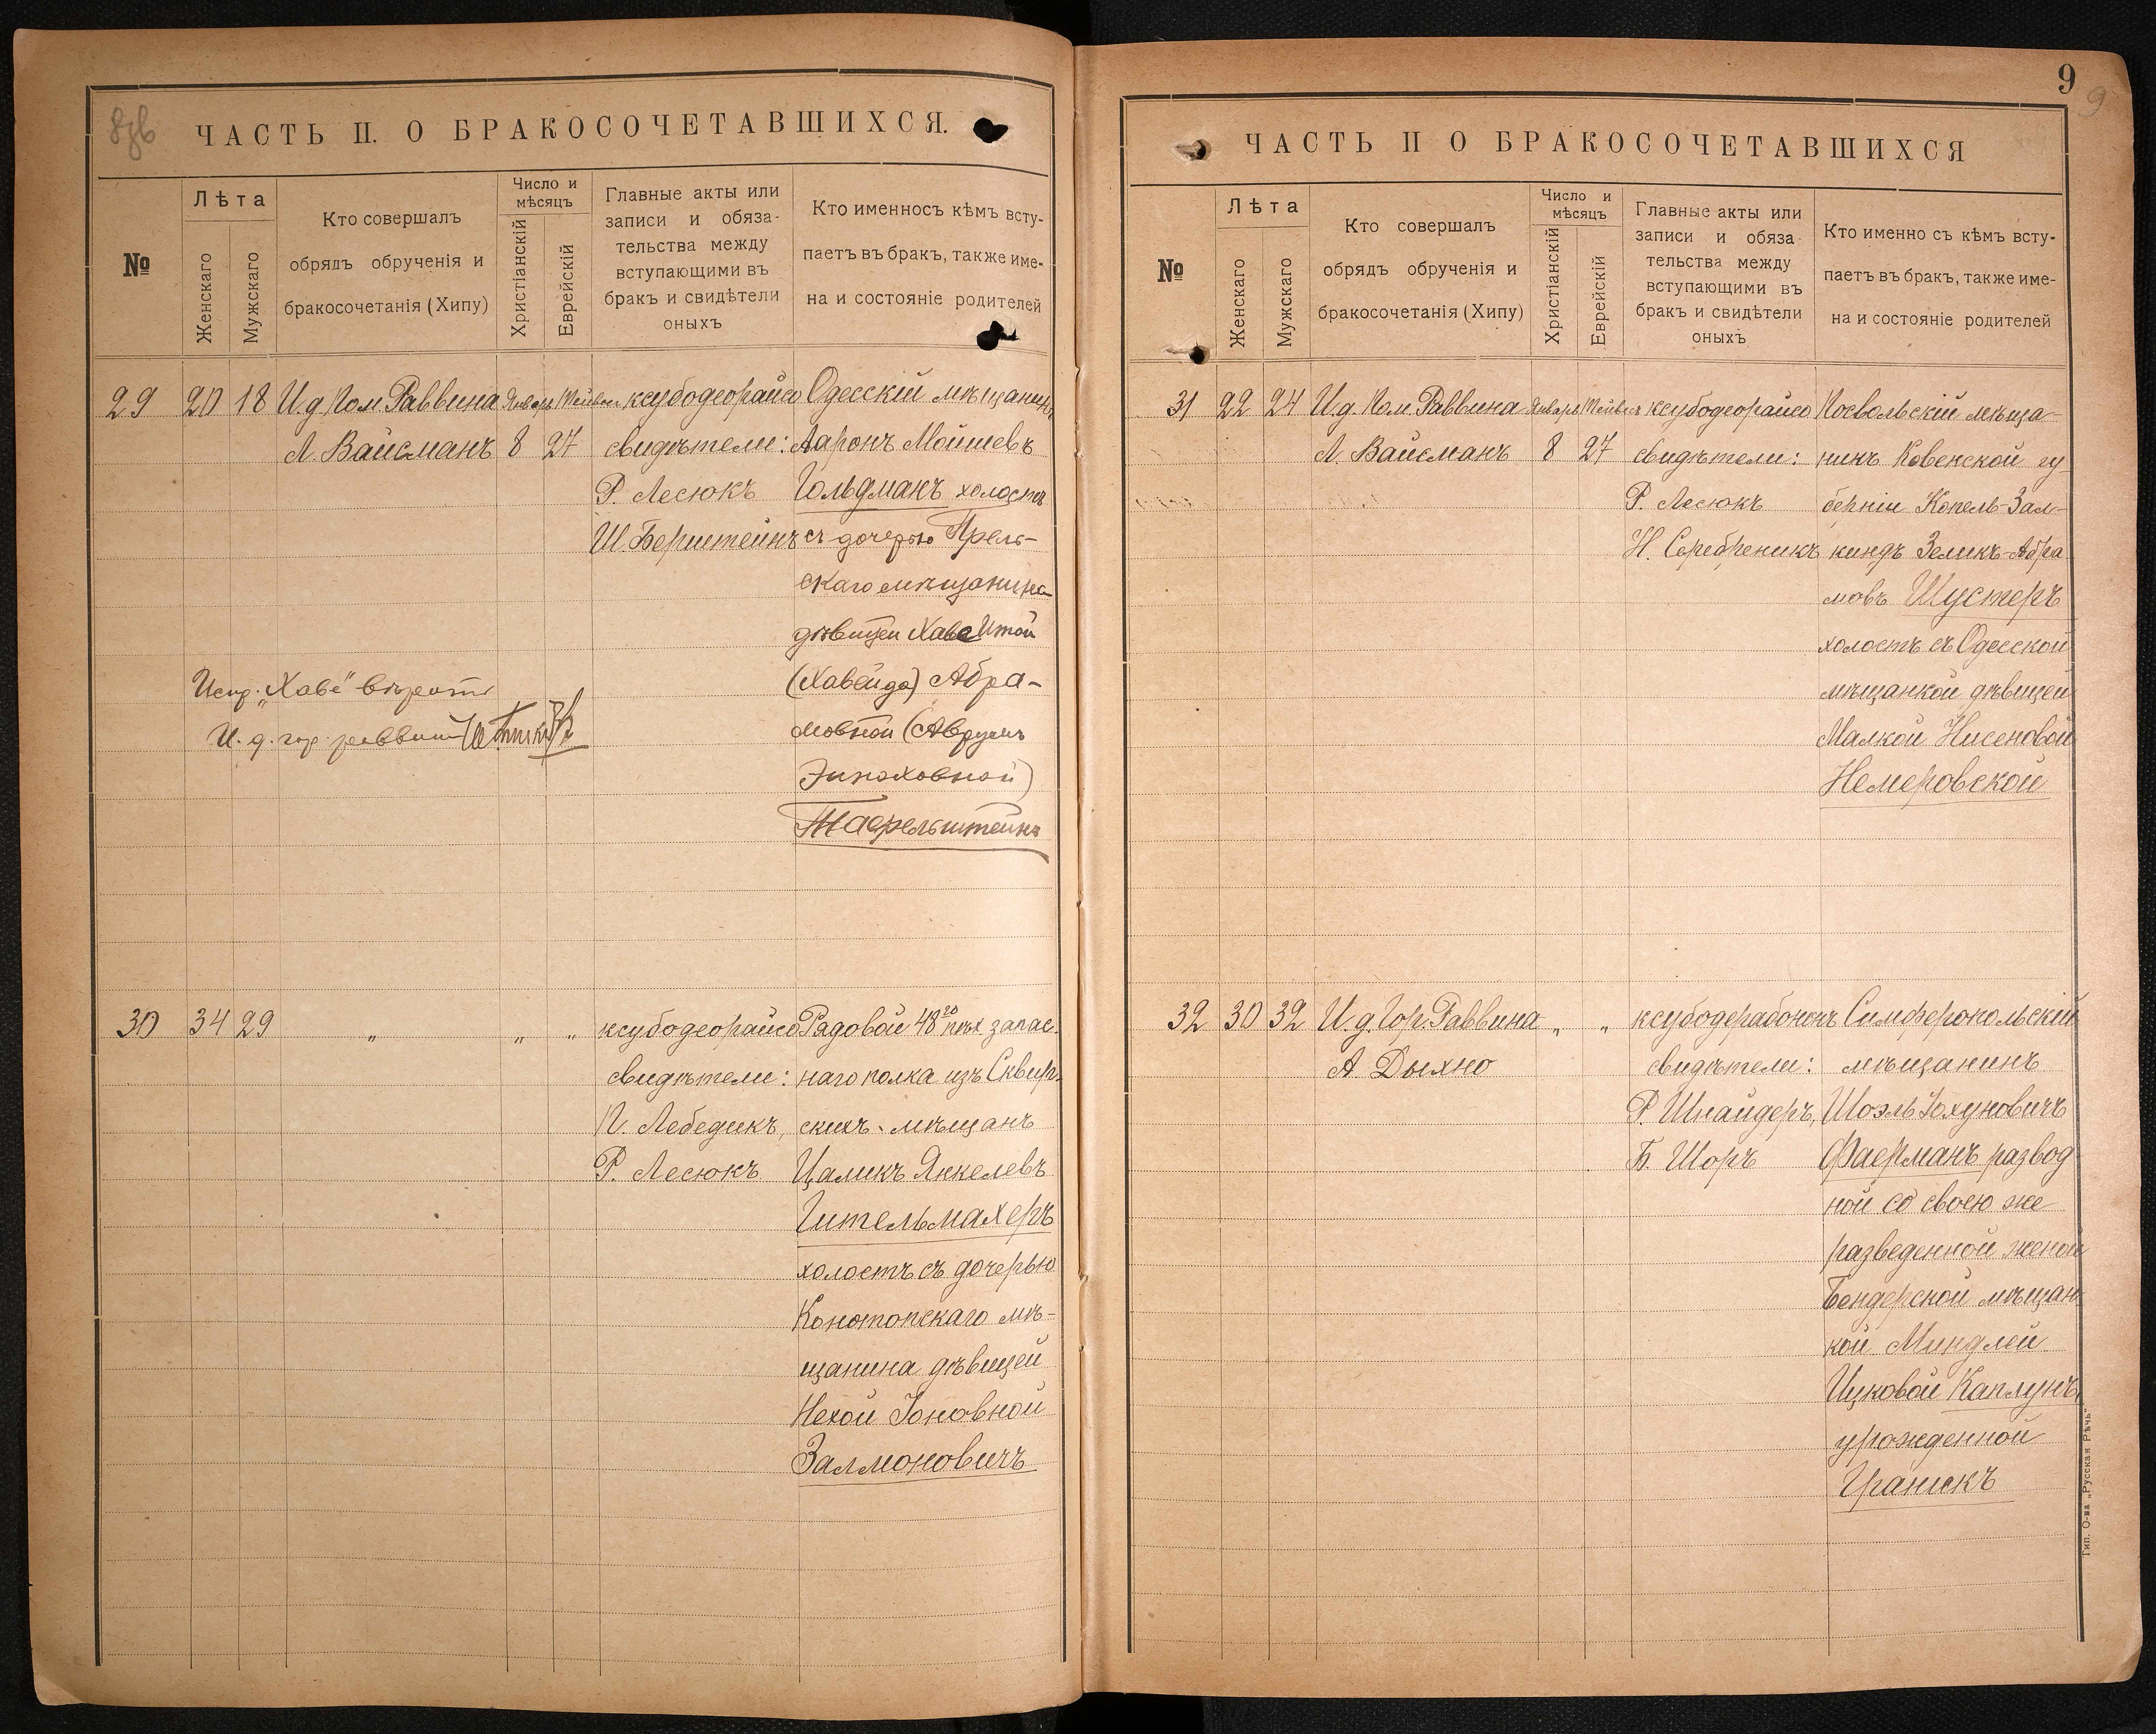 ЧАСТЬ II. О БРАКОСОЧЕТАВШИХСЯ.
№
Лѣта
Женскаго
Мужскаго
Кто совершалъ
обрядъ обрученія и
бракосочетанія (Хипу)
Число и
мѣсяцъ
Христіанскій
Еврейскій
Главные акты или
записи и обяза-
тельства между
вступающими въ
бракъ и свидѣтели
оныхъ
Кто именносъ кѣмъ всту-
паетъ въ бракъ, также име-
на и состояніе родителей
29 20 18
И.д. Пом. Раввина
Л. Вайсманъ
Январь
8
Тейвес
27
ксубодеорайсо
свидѣтели:
Р. Лесюкъ
Ш. Берштейнъ
Одесскій мѣщанинъ
Ааронъ Мойшевъ
Гольдманъ холостъ
съ дочерью
скаго мѣщанина
дѣвицей Хаве Итой
(Хавейда) Абра-
мовной (Аврумъ
Эноховной)
Тафельштейнъ
Испр. „Хаве" вѣрить
И. д. гор. раввина
30 34 29 „ „ „
ксубодеорайсо
свидѣтели:
П. Лебедикъ,
Р. Лесюкъ
Рядовой 48го пѣх запас-
наго полка изъ Сквир-
скихъ мѣщанъ
Цаликъ Янкелевъ
Гительмахеръ
холостъ съ дочерью
Конотопскаго мѣ-
щанина дѣвицей
Нехой Іоновной
Залмоновичъ
9
9
ЧАСТЬ II О БРАКОСОЧЕТАВШИХСЯ
№
Лѣта
Женскаго
Мужскаго
Кто совершалъ
обрядъ обрученія и
бракосочетанія (Хипу)
Число и
мѣсяцъ
Христіанскій
Еврейскій
Главные акты или
записи и обяза-
тельства между
вступающими въ
бракъ и свидѣтели
оныхъ
Кто именно съ кѣмъ всту-
паетъ въ бракъ, также име-
на и состояніе родителей
31 22 24
И.д. Пом. Раввина
Л. Вайсманъ
Январь
8
Тейвес
27
ксубодеорайсо
свидѣтели:
Р. Лесюкъ
Н. Серебреникъ
Посвольскій мѣща-
нинъ Ковенской гу
берніи Копель-Зал-
киндъ Зеликъ-Абра
мовъ Шустеръ
холостъ съ Одесской
мѣщанкой дѣвицей
Малкой Нисеновой
Немеровской
32 30 32
И.д. Гор. Раввина
А Дыхно
„ „
ксубодерабононъ
свидѣтели:
Р. Шнайдеръ,
Б. Шоръ
Симферопольскій
мѣщанинъ
Шоэль Іохуновичъ
Фаерманъ развод
ной со своею же
разведенной женой
Бендерской мѣщан
кой Миндлей
Ицковой Каплунъ,
урожденной
Граникъ
Тип. О-ва „Русская Рѣчь"